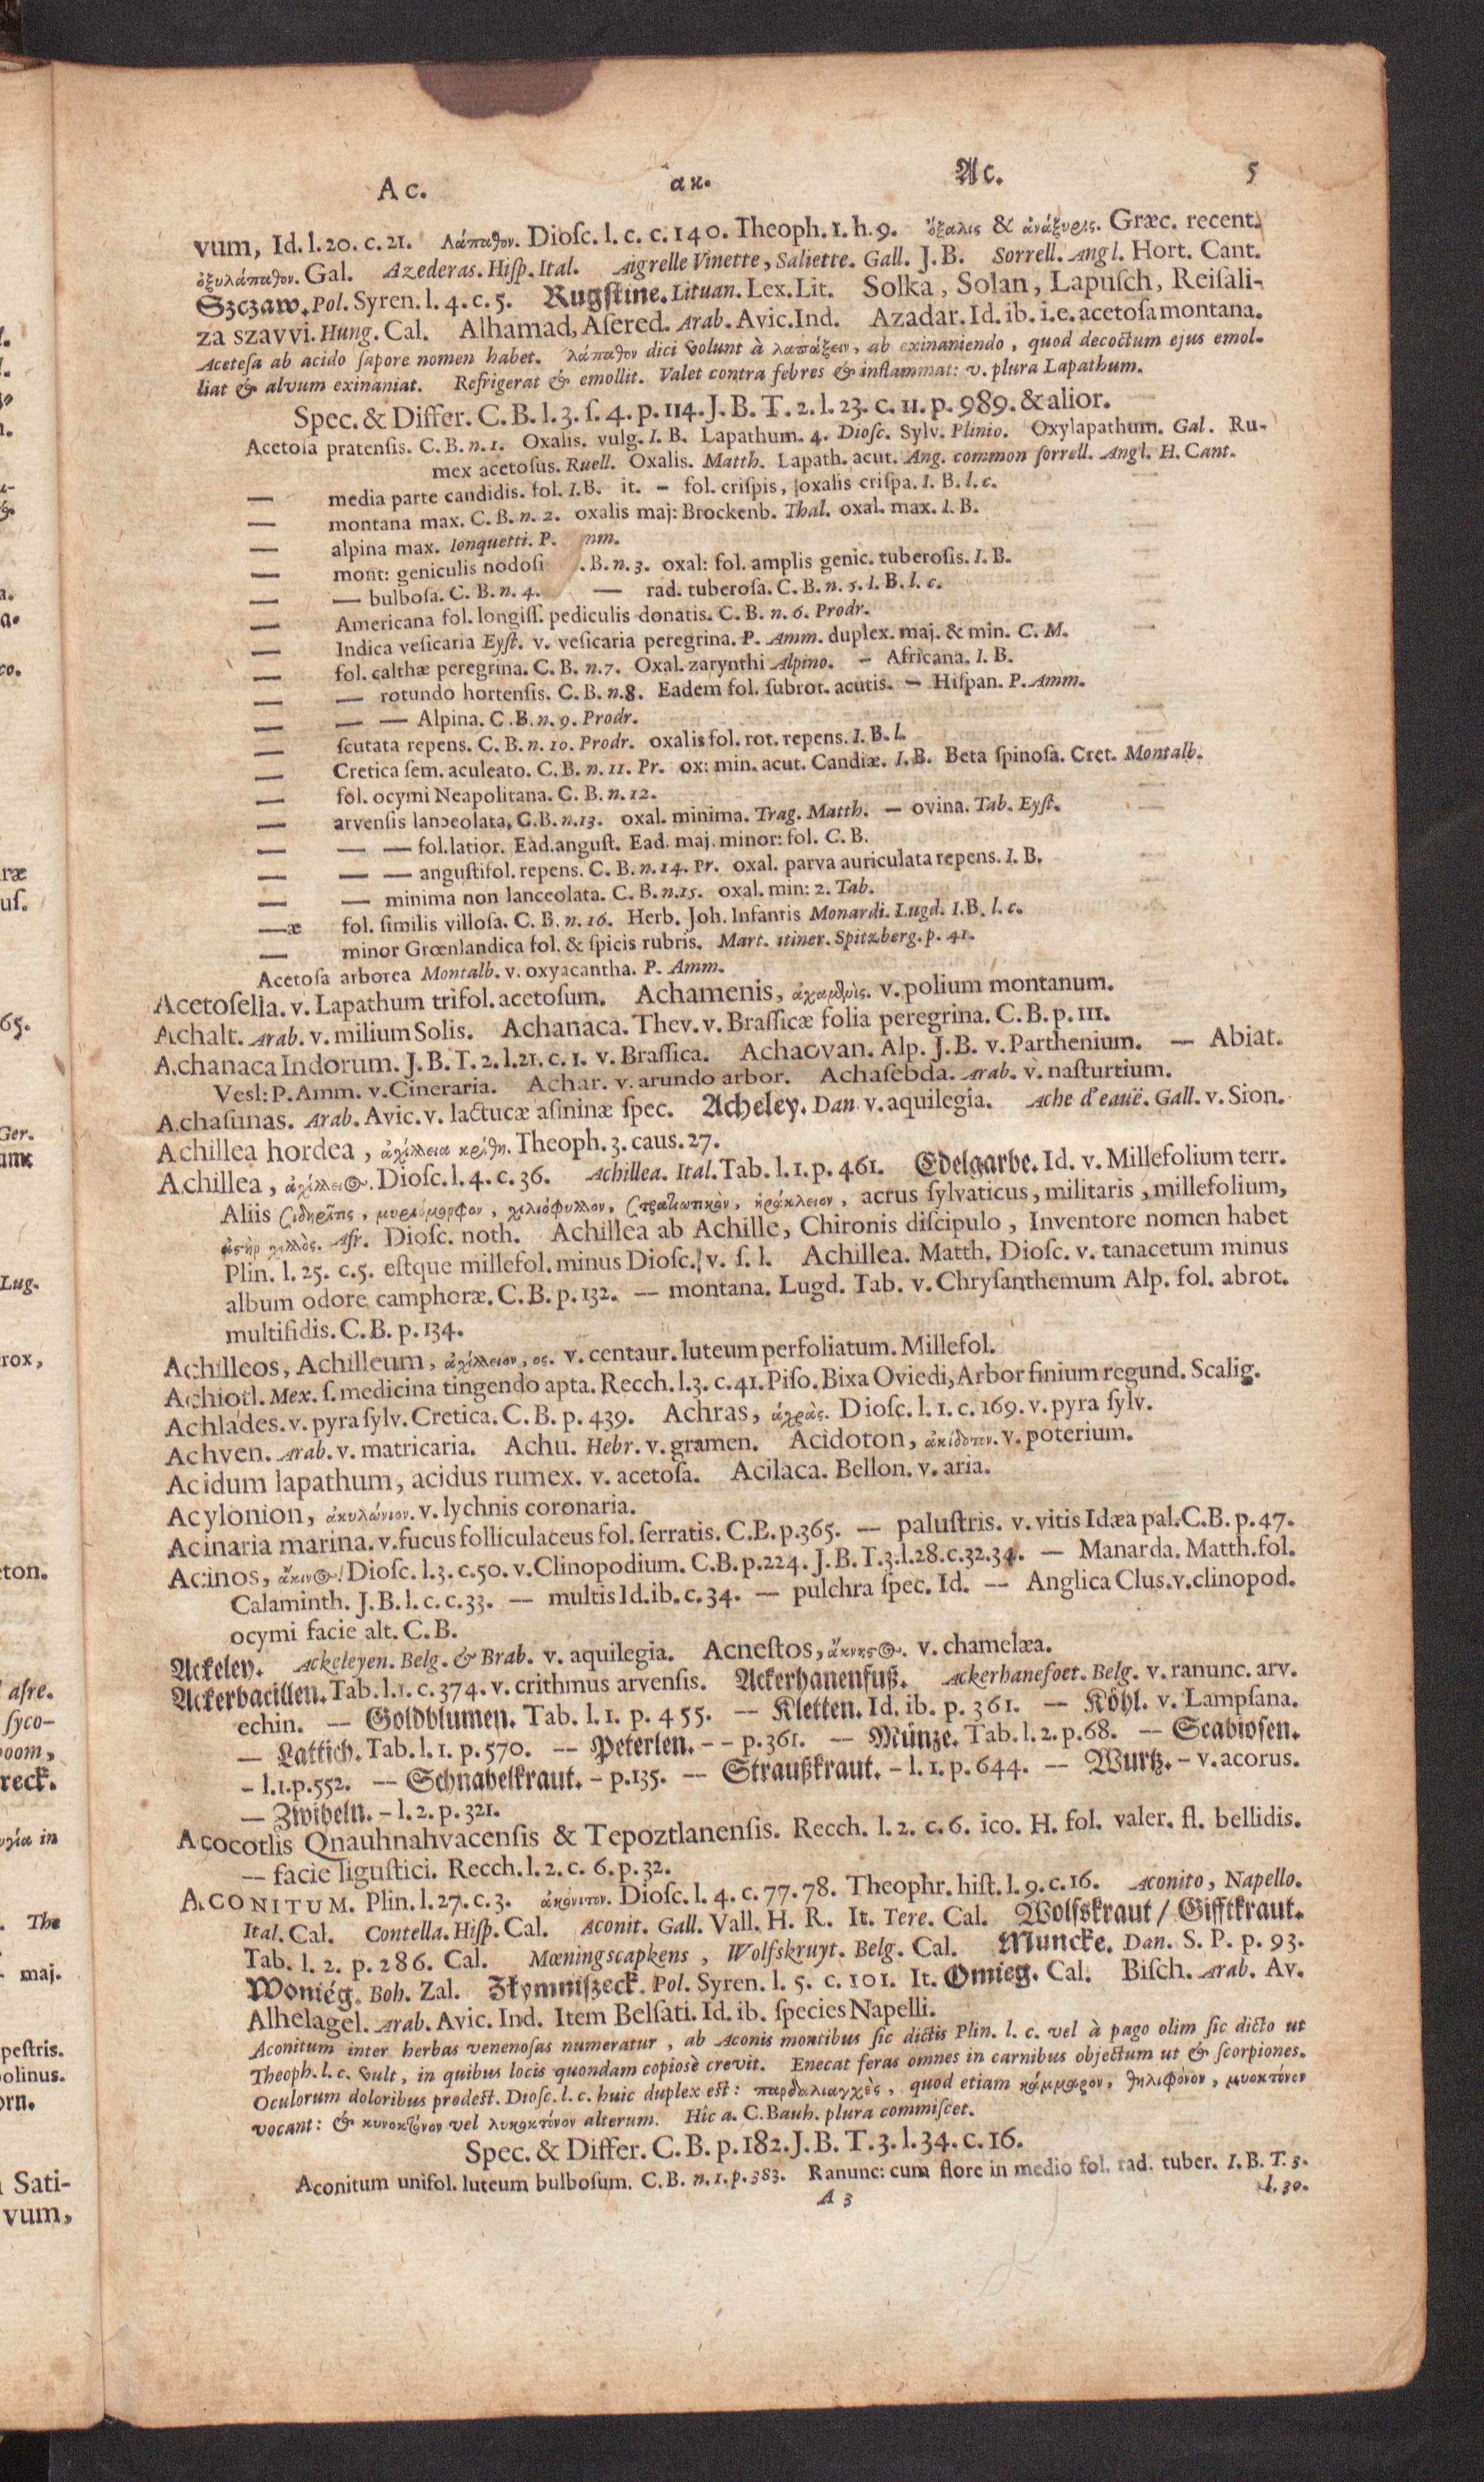 Ac. ακ. Ac. 5
vum, Id. l. 20. c. 21. Λάπαθον. Diosc. l. c. c. 140. Theoph. 1. h. 9. ὄξαλις & ἀνάξυρις. Græc. recent.
ὀξυλάπαθον. Gal. Azederas. Hiſp. Ital. Aigrelle Vinette, Saliette. Gall. J. B. Sorrell. Angl. Hort. Cant.
Szczaw. Pol. Syren. l. 4. c. 5. Rugſtine. Lituan. Lex. Lit. Solka, Solan, Lapuſch, Reiſali-
za szavvi. Hung. Cal. Alhamad, Aſered. Arab. Avic. Ind. Azadar. Id. ib. i. e. acetoſa montana.
Acetoſa ab acido ſapore nomen habet. λάπαθον dici volunt à λαπάξειν, ab exinaniendo, quod decoctum ejus emol-
liat & alvum exinaniat. Refrigerat & emollit. Valet contra febres & inflammat: v. plura Lapathum.
Spec. & Differ. C. B. l. 3. ſ. 4. p. 114. J. B. T. 2. l. 23. c. 11. p. 989. & alior.
Acetoſa pratenſis. C. B. n. 1. Oxalis. vulg. I. B. Lapathum. 4. Dioſc. Sylv. Plinio. Oxylapathum. Gal. Ru-
mex acetoſus. Ruell. Oxalis. Matth. Lapath. acut. Ang. common ſorrell. Angl. H. Cant.
— media parte candidis. fol. I. B. it. – fol. criſpis, oxalis criſpa. I. B. l. c.
— montana max. C. B. n. 2. oxalis maj: Brockenb. Thal. oxal. max. I. B.
— alpina max. Ionquetti. P. mm.
— mont: geniculis nodoſi . B. n. 3. oxal: fol. amplis genic. tuberoſis. I. B.
— — bulboſa. C. B. n. 4. — rad. tuberoſa. C. B. n. 5. I. B. l. c.
— Americana fol. longiſſ. pediculis donatis. C. B. n. 6. Prodr.
— Indica veſicaria Eyſt. v. veſicaria peregrina. P. Amm. duplex. maj. & min. C. M.
— fol. calthæ peregrina. C. B. n. 7. Oxal. zarynthi Alpino. – Africana. I. B.
— — rotundo hortenſis. C. B. n. 8. Eadem fol. ſubrot. acutis. — Hiſpan. P. Amm.
— — — Alpina. C. B. n. 9. Prodr.
— ſcutata repens. C. B. n. 10. Prodr. oxalis fol. rot. repens. I. B. l.
— Cretica ſem. aculeato. C. B. n. 11. Pr. ox: min. acut. Candiæ. I. B. Beta ſpinoſa. Cret. Montalb.
— fol. ocymi Neapolitana. C. B. n. 12.
— arvenſis lanceolata. C. B. n. 13. oxal. minima. Trag. Matth. — ovina. Tab. Eyſt.
— — — fol. latior. Ead. anguſt. Ead. maj. minor: fol. C. B.
— — — anguſtifol. repens. C. B. n. 14. Pr. oxal. parva auriculata repens. I. B.
— — minima non lanceolata. C. B. n. 15. oxal. min: 2. Tab.
—æ fol. ſimilis villoſa. C. B. n. 16. Herb. Joh. Infantis Monardi. Lugd. I. B. l. c.
— minor Grœnlandica fol. & ſpicis rubris. Mart. itiner. Spitzberg. p. 41.
Acetoſa arborea Montalb. v. oxyacantha. P. Amm.
Acetoſella. v. Lapathum trifol. acetoſum. Achamenis, v. polium montanum.
Achalt. Arab. v. milium Solis. Achanaca. Thev. v. Braſſicæ folia peregrina. C. B. p. 111.
Achanaca Indorum. J. B. T. 2. l. 21. c. 1. v. Braſſica. Achaovan. Alp. J. B. v. Parthenium. — Abiat.
Veſl: P. Amm. v. Cineraria. Achar. v. arundo arbor. Achaſebda. Arab. v. naſturtium.
Achaſunas. Arab. Avic. v. lactucæ aſininæ ſpec. Acheley. Dan. v. aquilegia. Ache d'eauë. Gall. v. Sion.
Achillea hordea, ἀχίλλεια κρίθη. Theoph. 3. cauſ. 27.
Achillea, ἀχίλλειος. Dioſc. l. 4. c. 36. Achillea. Ital. Tab. l. 1. p. 461. Edelgarbe. Id. v. Millefolium terr.
Aliis ſιδηρῖτις, μυριόμορφον, χιλιόφυλλον, ςρατιωτικὸν, ἡράκλειον, acrus ſylvaticus, militaris, millefolium,
Afr. Dioſc. noth. Achillea ab Achille, Chironis diſcipulo, Inventore nomen habet
Plin. l. 25. c. 5. eſtque millefol. minus Dioſc. v. ſ. l. Achillea. Matth. Dioſc. v. tanacetum minus
album odore camphoræ. C. B. p. 132. — montana. Lugd. Tab. v. Chryſanthemum Alp. fol. abrot.
multifidis. C. B. p. 134.
Achilleos, Achilleum, ἀχίλλειον, ος. v. centaur. luteum perfoliatum. Millefol.
Achiotl. Mex. ſ. medicina tingendo apta. Recch. l. 3. c. 41. Piſo. Bixa Oviedi, Arbor finium regund. Scalig.
Achlades. v. pyra ſylv. Cretica. C. B. p. 439. Achras, ἀχρὰς. Dioſc. l. 1. c. 169. v. pyra ſylv.
Achven. Arab. v. matricaria. Achu. Hebr. v. gramen. Acidoton, ἀκίδοτον. v. poterium.
Acidum lapathum, acidus rumex. v. acetoſa. Acilaca. Bellon. v. aria.
Acylonion, ἀκυλώνιον. v. lychnis coronaria.
Acinaria marina. v. fucus folliculaceus fol. ſerratis. C. B. p. 365. — paluſtris. v. vitis Idæa pal. C. B. p. 47.
Acinos, ἄκινος. Dioſc. l. 3. c. 50. v. Clinopodium. C. B. p. 224. J. B. T. 3. l. 28. c. 32. 34. — Manarda. Matth. fol.
Calaminth. J. B. l. c. c. 33. — multis Id. ib. c. 34. — pulchra ſpec. Id. — Anglica Cluſ. v. clinopod.
ocymi facie alt. C. B.
Ackeley. Ackeleyen. Belg. & Brab. v. aquilegia. Acneſtos, ἄκνηςος. v. chamelæa.
Ackerbacillen. Tab. l. 1. c. 374. v. crithmus arvenſis. Ackerhanenfuß. Ackerhanefoet. Belg. v. ranunc. arv.
echin. — Goldblumen. Tab. l. 1. p. 455. — Kletten. Id. ib. p. 361. — Köhl. v. Lampſana.
— Lattich. Tab. l. 1. p. 570. — Peterlen. – – p. 361. — Münze. Tab. l. 2. p. 68. — Scabioſen.
– l. 1. p. 552. — Schnabelkraut. – p. 135. — Straußkraut. – l. 1. p. 644. — Wurtz. – v. acorus.
— Zwibeln. – l. 2. p. 321.
Acocotlis Qnauhnahvacenſis & Tepoztlanenſis. Recch. l. 2. c. 6. ico. H. fol. valer. fl. bellidis.
— facie liguſtici. Recch. l. 2. c. 6. p. 32.
ACONITUM. Plin. l. 27. c. 3. ἀκόνιτον. Dioſc. l. 4. c. 77. 78. Theophr. hiſt. l. 9. c. 16. Aconito, Napello.
Ital. Cal. Contella. Hiſp. Cal. Aconit. Gall. Vall. H. R. It. Tere. Cal. Wolfskraut / Gifftkraut.
Tab. l. 2. p. 286. Cal. Mœningscapkens, Wolfskruyt. Belg. Cal. Muncke. Dan. S. P. p. 93.
Woniég. Boh. Zal. Pol. Syren. l. 5. c. 101. It. Omieg. Cal. Biſch. Arab. Av.
Alhelagel. Arab. Avic. Ind. Item Belſati. Id. ib. ſpecies Napelli.
Aconitum inter herbas venenoſas numeratur, ab Aconis montibus ſic dictis Plin. l. c. vel à pago olim ſic dicto ut
Theoph. l. c. vult, in quibus locis quondam copiosè crevit. Enecat feras omnes in carnibus objectum ut & ſcorpiones.
Oculorum doloribus prodeſt. Dioſc. l. c. huic duplex eſt: παρδαλιαγχὲς, quod etiam κάμμαρον, θηλιφόνον, μυοκτόνον
vocant: & κυνοκτόνον vel λυκοκτόνον alterum. Hîc a. C. Bauh. plura commiſcet.
Spec. & Differ. C. B. p. 182. J. B. T. 3. l. 34. c. 16.
Aconitum unifol. luteum bulboſum. C. B. n. 1. p. 383. Ranunc: cum flore in medio fol. rad. tuber. I. B. T. 3.
A 3 l. 30.